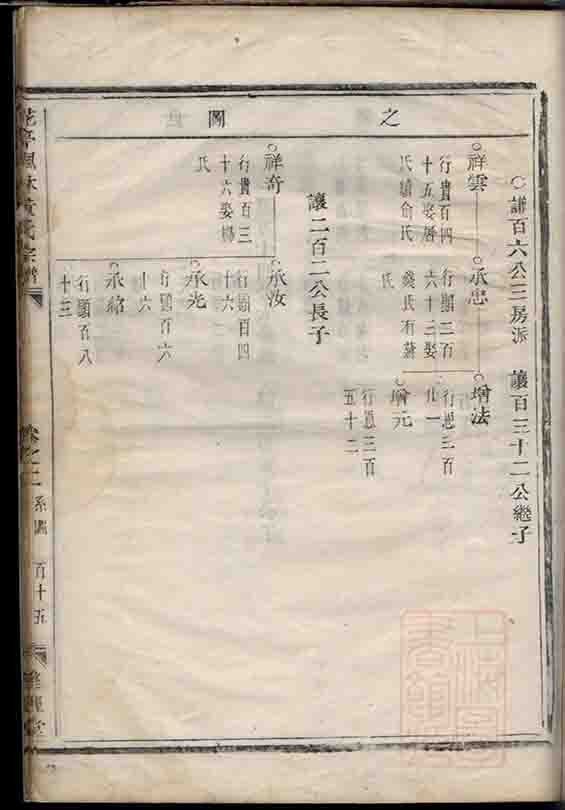 之圖
○謙百六公三房派 讓百三十二公繼子
祥雲
行貴百四
十五娶屠
氏續俞氏
承忠
行顯二百
六十二娶
錢氏有蕭
氏
增法
行恩三百
廿一
增元
行恩三百
五十二
讓二百二公長子
祥奇
行貴百三
十六娶楊
氏
承汝
行顯百四
十六
承光
行顯百六
十六
承紹
行顯百八
十三
黃氏宗譜
卷之三
系圖
百十五
上海圖書館藏